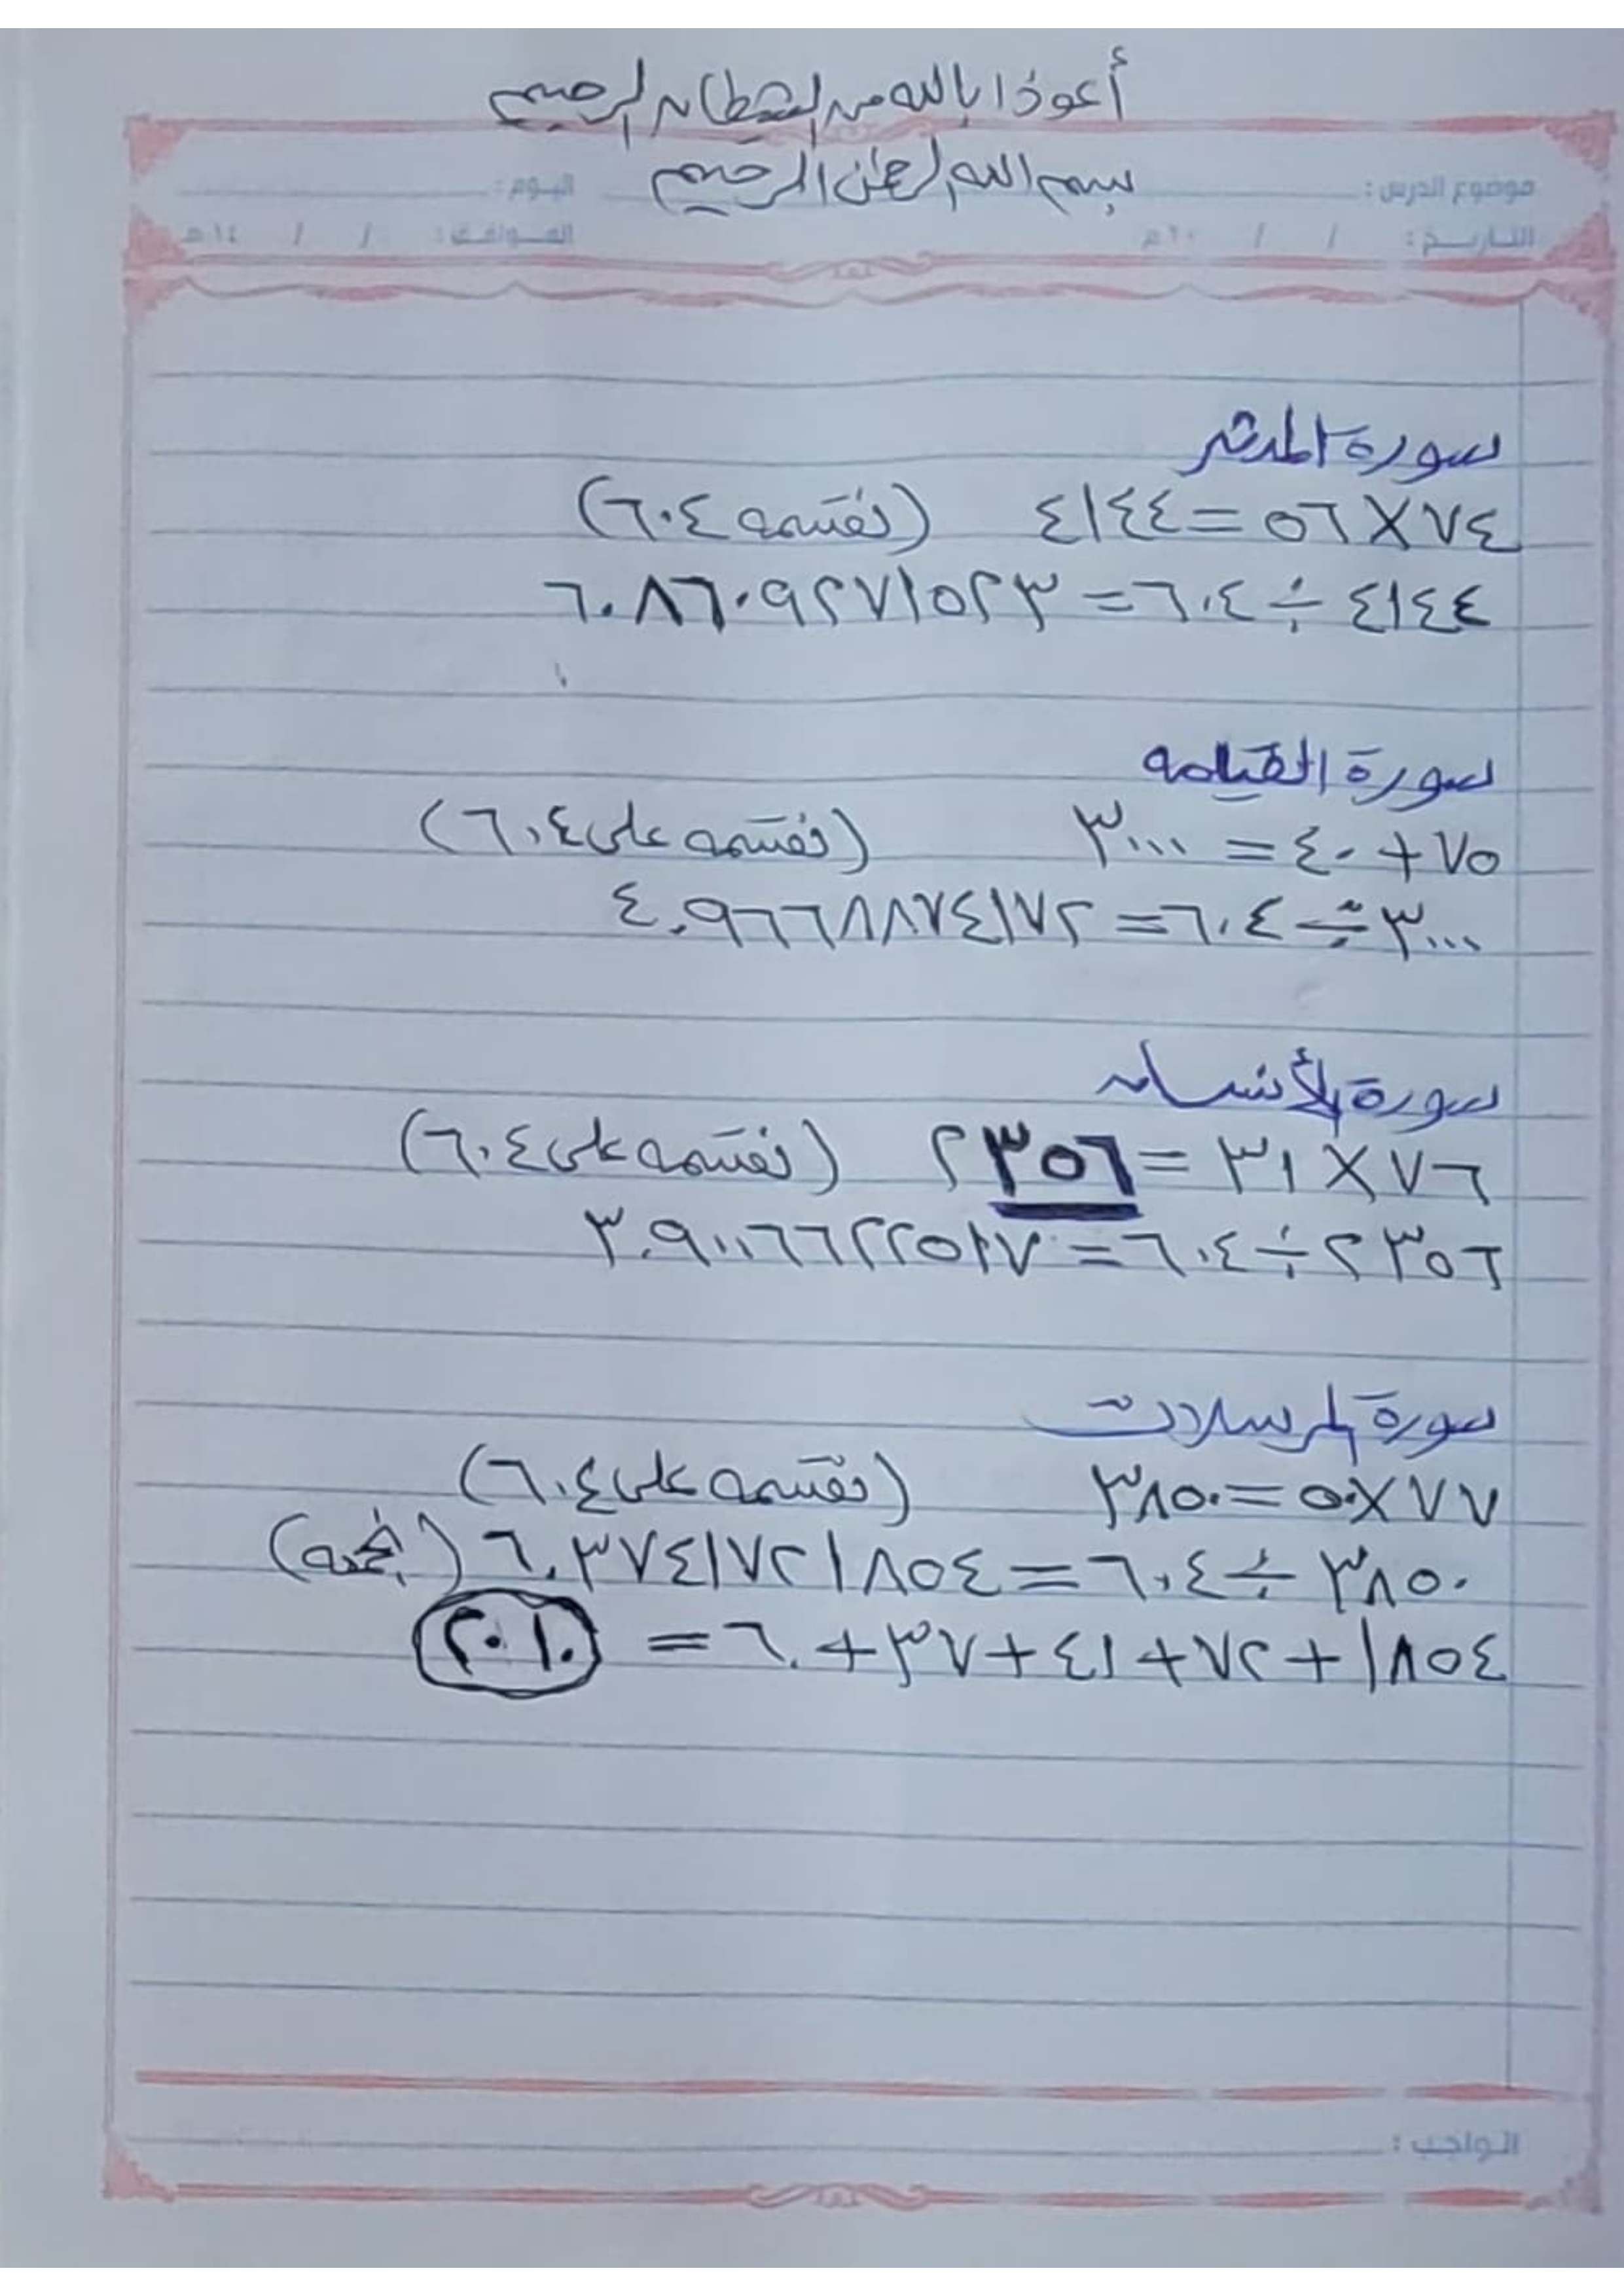 أعوذا بالله من الشيطان الرجيم
بسم الله الرحمن الرحيم
موضوع الدرس : اليوم :
التاريخ : / / ٢٠م الموافق : / / ١٤هـ
سورة المدثر
٧٤ × ٥٦ = ٤١٤٤ (نقسمه ٦٠٤)
٤١٤٤ ÷ ٦٠٤ = ٦.٨٦٠٩٢٧١٥٢٣
سورة القيامه
٧٥ + ٤٠ = ٣٠٠٠ (نقسمه على ٦٠٤)
٣٠٠٠ ÷ ٦٠٤ = ٤.٩٦٦٨٨٧٤١٧٢
سورة الأنسان
٧٦ × ٣١ = ٢٣٥٦ (نقسمه على ٦٠٤)
٢٣٥٦ ÷ ٦٠٤ = ٣.٩٠٠٦٦٢٢٥١٧
سورة المرسلات
٧٧ × ٥٠ = ٣٨٥٠ (نقسمه على ٦٠٤)
٣٨٥٠ ÷ ٦٠٤ = ٦.٣٧٤١٧٢١٨٥٤ (نجمعه)
١٨٥٤ + ٧٢ + ٤١ + ٣٧ + ٦٠ = ٢٠١٠
الواجب :